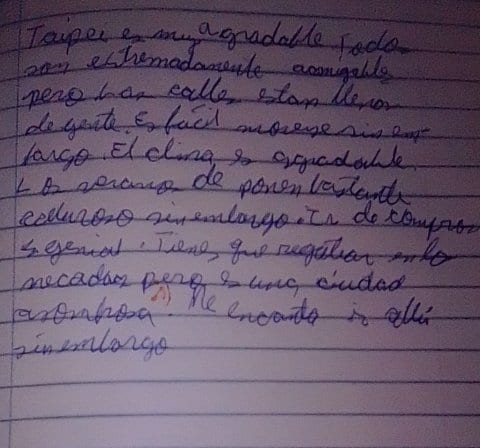 Taipei es muy agradable Todos
son extremadamente amigable
pero las calles estan llenos
de gente. Es fácil moverse sin em-
bargo. El clima es agradable.
Los veranos de ponen bastante
caluroso sin embargo. Ir de compras
es genial. Tienes que regatear en los
mecados pero es una ciudad
asombrosa. Me encanta ir allí
sin embargo